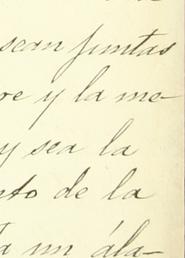 sean juntas
y la me-
y sea la
nto de la
un ála-